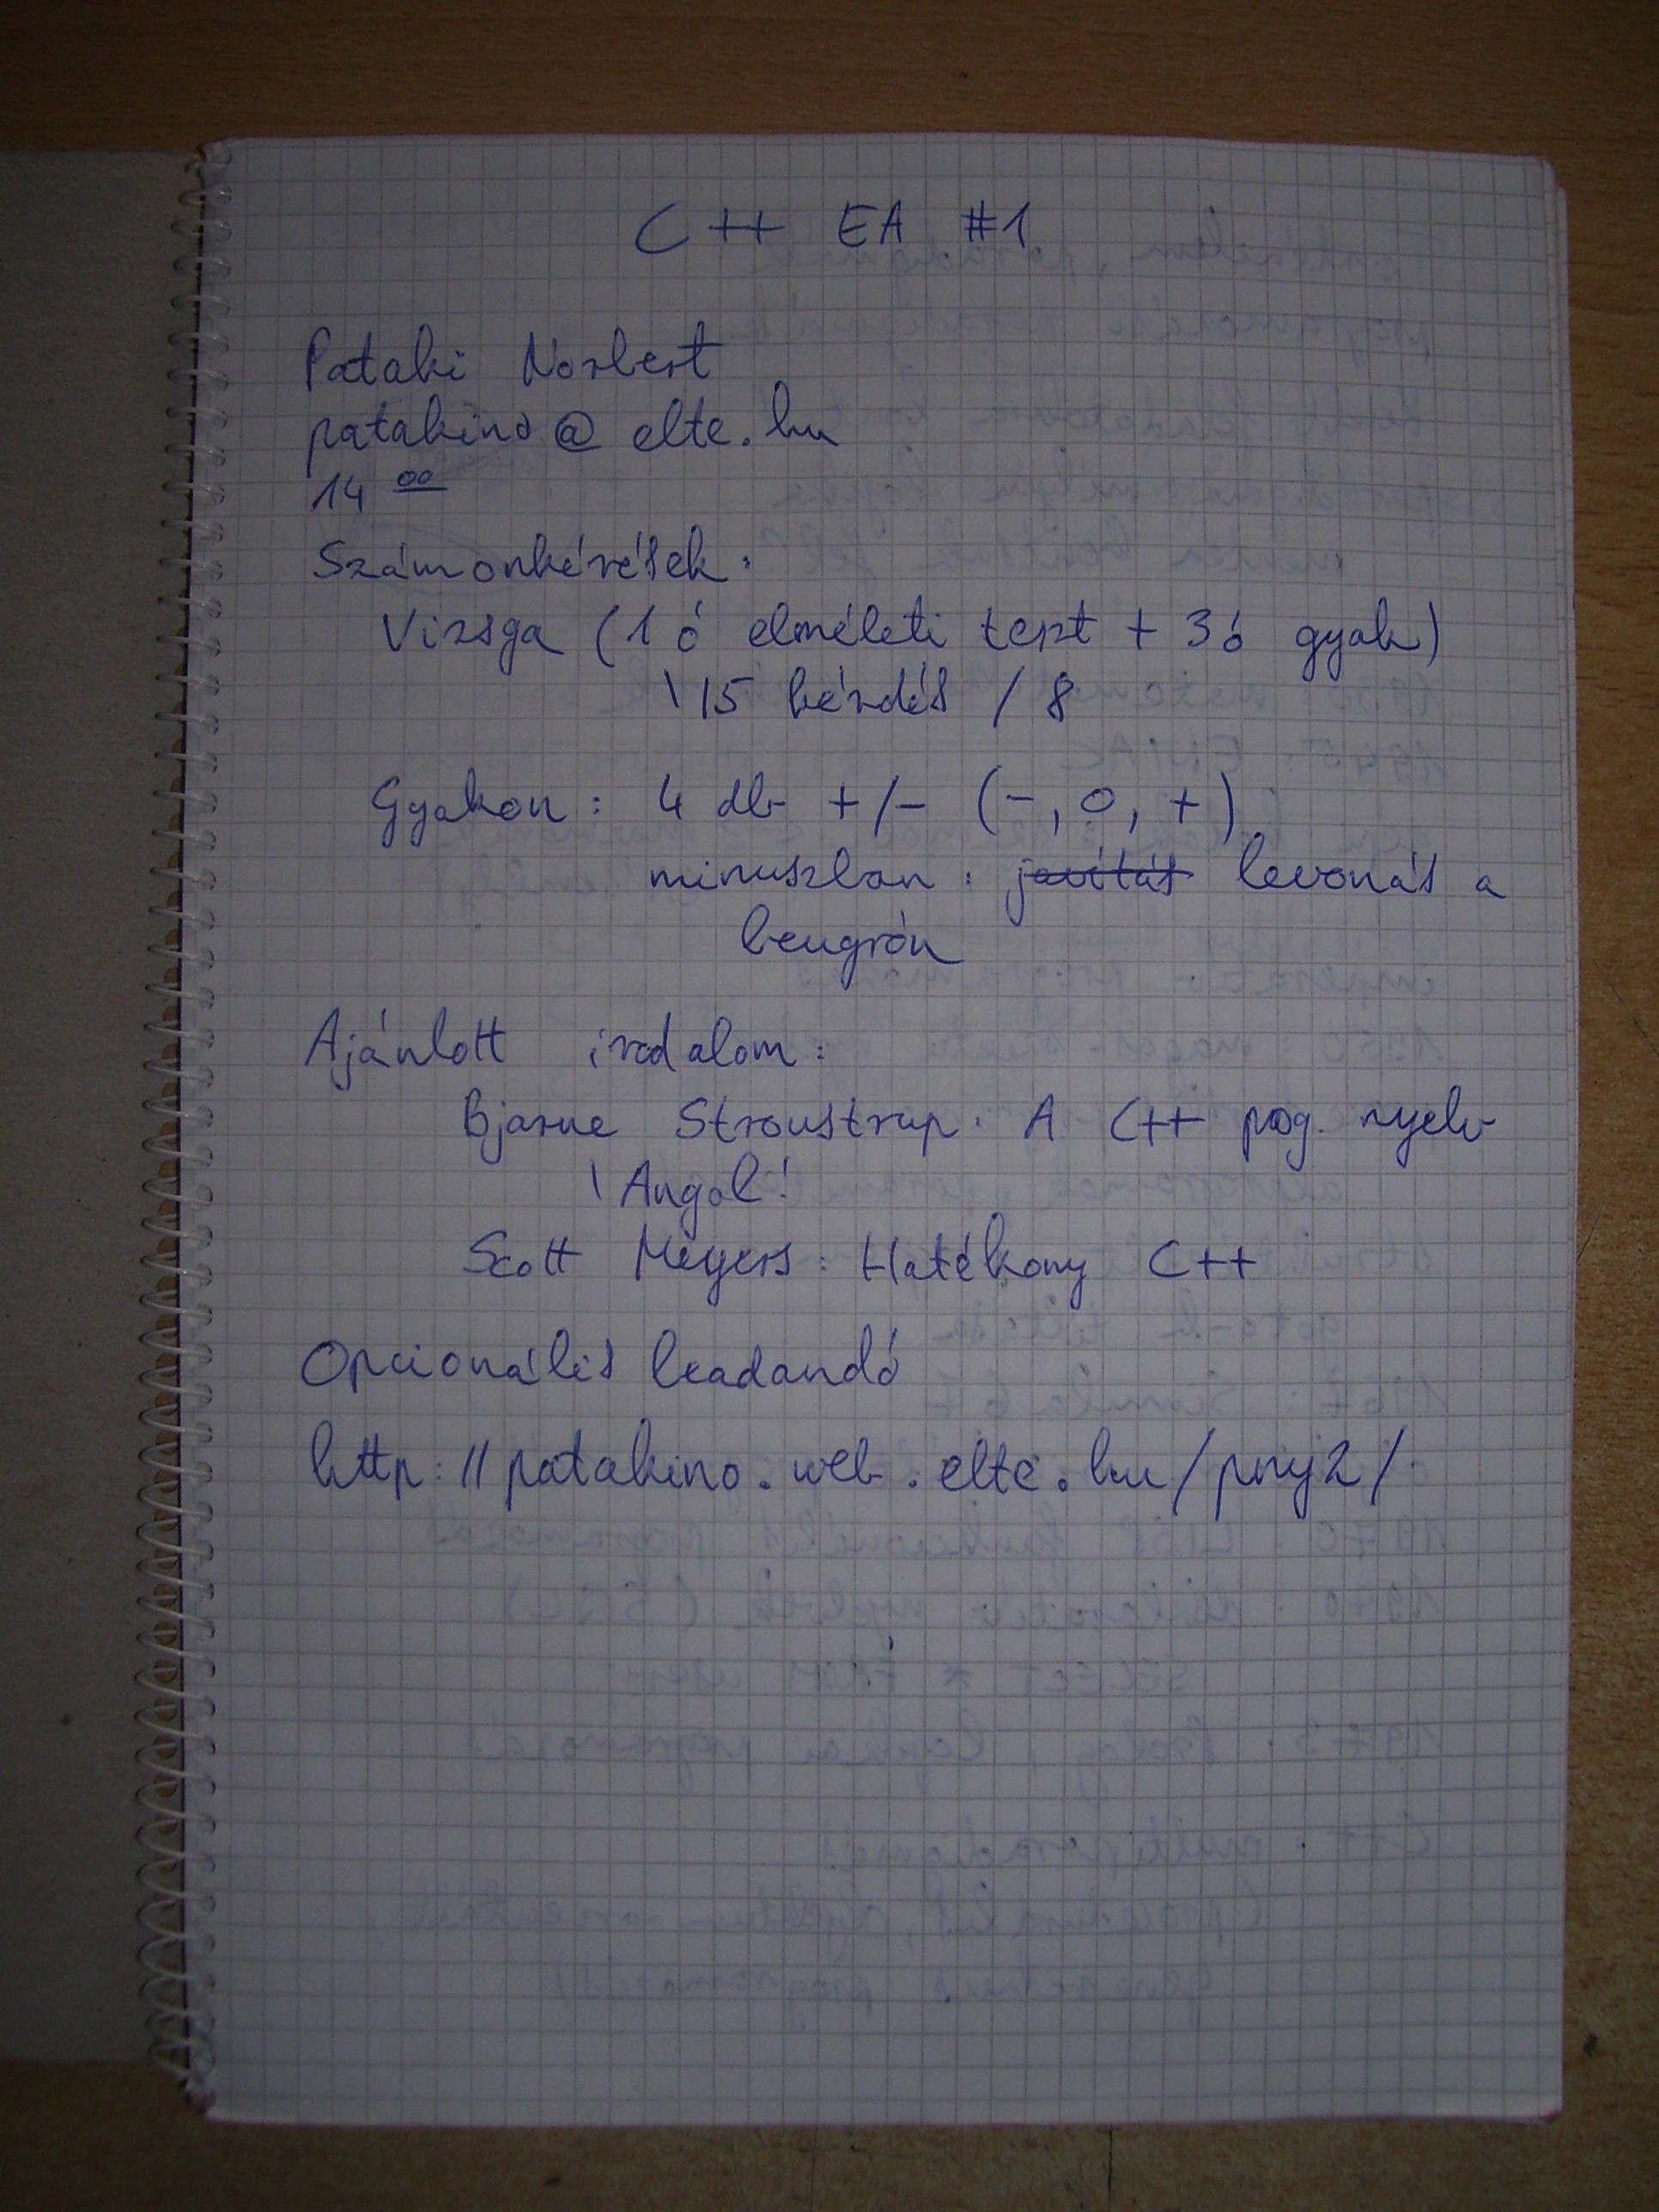 C++ EA #1
Pataki Norbert
patakino @ elte.hu
14 00
Számonkérések:
Vizsga (1 ó elméleti teszt + 3ó gyak)
\ 15 kérdés / 8
Gyakon: 4 db +/- (-, 0, +)
minuszban: javítás levonás a
beugrón
Ajánlott irodalom:
Bjarne Stroustrup: A C++ prog. nyelv
\ Angol!
Scott Meyers: Hatékony C++
Opcionális leadandó
http://patakino.web.elte.hu/pny2/